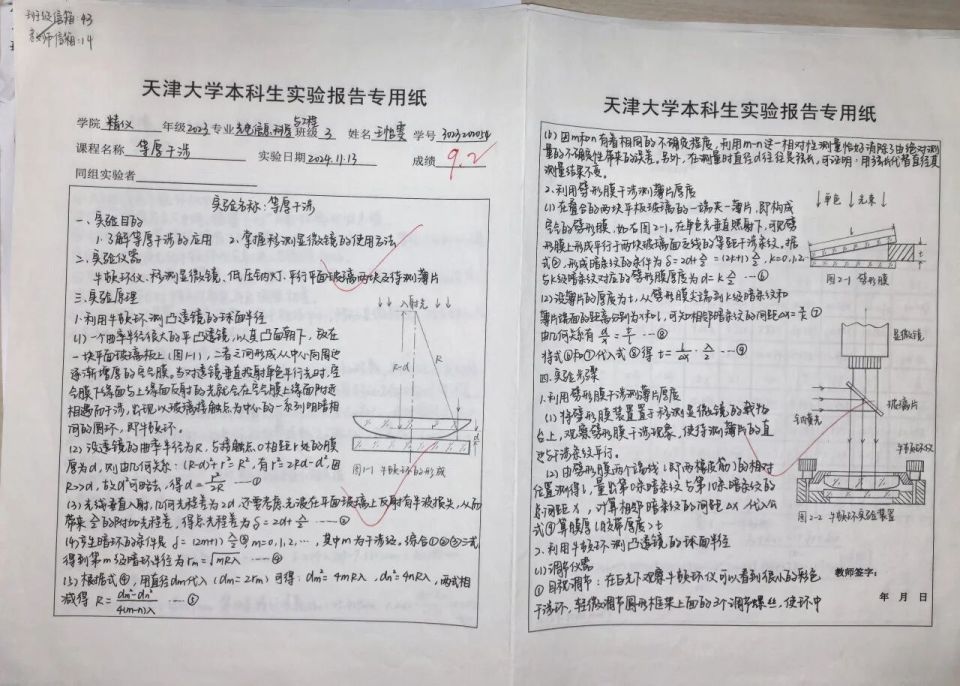 班级信箱:43
教师信箱:14
天津大学本科生实验报告专用纸
学院 精仪 年级2023 专业 光电信息科学与工程 班级 3 姓名 学号
课程名称 等厚干涉 实验日期 2024.11.13 成绩 9.2
同组实验者
实验名称:等厚干涉
一、实验目的
1.了解等厚干涉的应用 2.掌握移测显微镜的使用方法
二、实验仪器
牛顿环仪、移测显微镜、低压钠灯、平行平面玻璃两块及待测薄片
三、实验原理
1.利用牛顿环测凸透镜的球面半径
(1)一个曲率半径很大的平凸透镜,以其凸面朝下,放在
一块平面玻璃板上(图1-1),二者之间形成从中心向周边
逐渐增厚的空气膜。当对透镜垂直投射单色平行光时,空
气膜下缘面与上缘面反射的光就会在空气膜上缘面附近
相遇而干涉,出现以玻璃接触点为中心的一系列明暗相
间的圆环,即牛顿环。
(2)设透镜的曲率半径为R,与接触点O相距r处的膜
厚为d,则由几何关系:(R-d)²+r²=R²,有r²=2Rd-d²,因
R>>d,故d²可略去,得d=r²/2R ……①
(3)光线垂直入射,几何光程差为2d,还要考虑光波在平面玻璃上反射有半波损失,从而
带来λ/2的附加光程差,得总光程差为δ=2d+λ/2 ……②
(4)产生暗环的条件是 δ=(2m+1)λ/2 ③ m=0,1,2,…,其中m为干涉级。综合①②③三式
得到第m级暗环半径为rm=√mRλ ……④
(5)根据式④,用直径dm代入(dm=2rm)可得:dm²=4mRλ,dn²=4nRλ,两式相
减得 R=(dm²-dn²)/4(m-n)λ ……⑤
入射光
R
R-d
r
d
图1-1 牛顿环的形成
天津大学本科生实验报告专用纸
(6)因m和n有着相同的不确定程度,利用m-n这一相对性测量恰好消除了由绝对测
量的不确定性带来的误差。另外,在测量时直径d往往是弦长,可证明:用弦长代替直径其
测量结果不变。
2.利用劈形膜干涉测薄片厚度
(1)在叠合的两块平板玻璃的一端夹一薄片,即构成
空气的劈形膜,如右图2-1。在单色光垂直照射下,可见劈
形膜上形成平行于两块玻璃面交线的等距干涉条纹。据
式②,形成暗条纹的条件为δ=2d+λ/2=(2k+1)λ/2,k=0,1,2…
与k级暗条纹对应的劈形膜厚度为d=kλ/2 ……⑥
(2)设薄片的厚度为t,从劈形膜尖端到k级暗条纹和
薄片端面的距离分别为x和l,可知相邻暗条纹的间距ΔX=x/k ⑦
由几何关系有 d/x=t/l ……⑧
将式⑥和⑦代入式⑧得 t=l/ΔX·λ/2 ……⑨
单色 光束
图2-1 劈形膜
四、实验步骤
1.利用劈形膜干涉测薄片厚度
(1)将劈形膜装置置于移测显微镜的载物
台上,观察劈形膜干涉现象,使待测薄片的直
边与干涉条纹平行。
(2)由劈形膜两个端线(即两橡皮筋)的相对
位置测得l,量出第0条暗条纹与第10条暗条纹的
间距X,计算相邻暗条纹的间距ΔX,代入公
式⑨算膜厚(及薄片厚度)t
2.利用牛顿环测凸透镜的球面半径
(1)调节仪器
①目视调节:在日光下观察牛顿环仪可以看到很小的彩色
干涉环,轻微调节圆形框架上面的3个调节螺丝,使环中
显微镜
玻璃片
钠黄光
牛顿环仪
图2-2 牛顿环实验装置
教师签字:
年 月 日